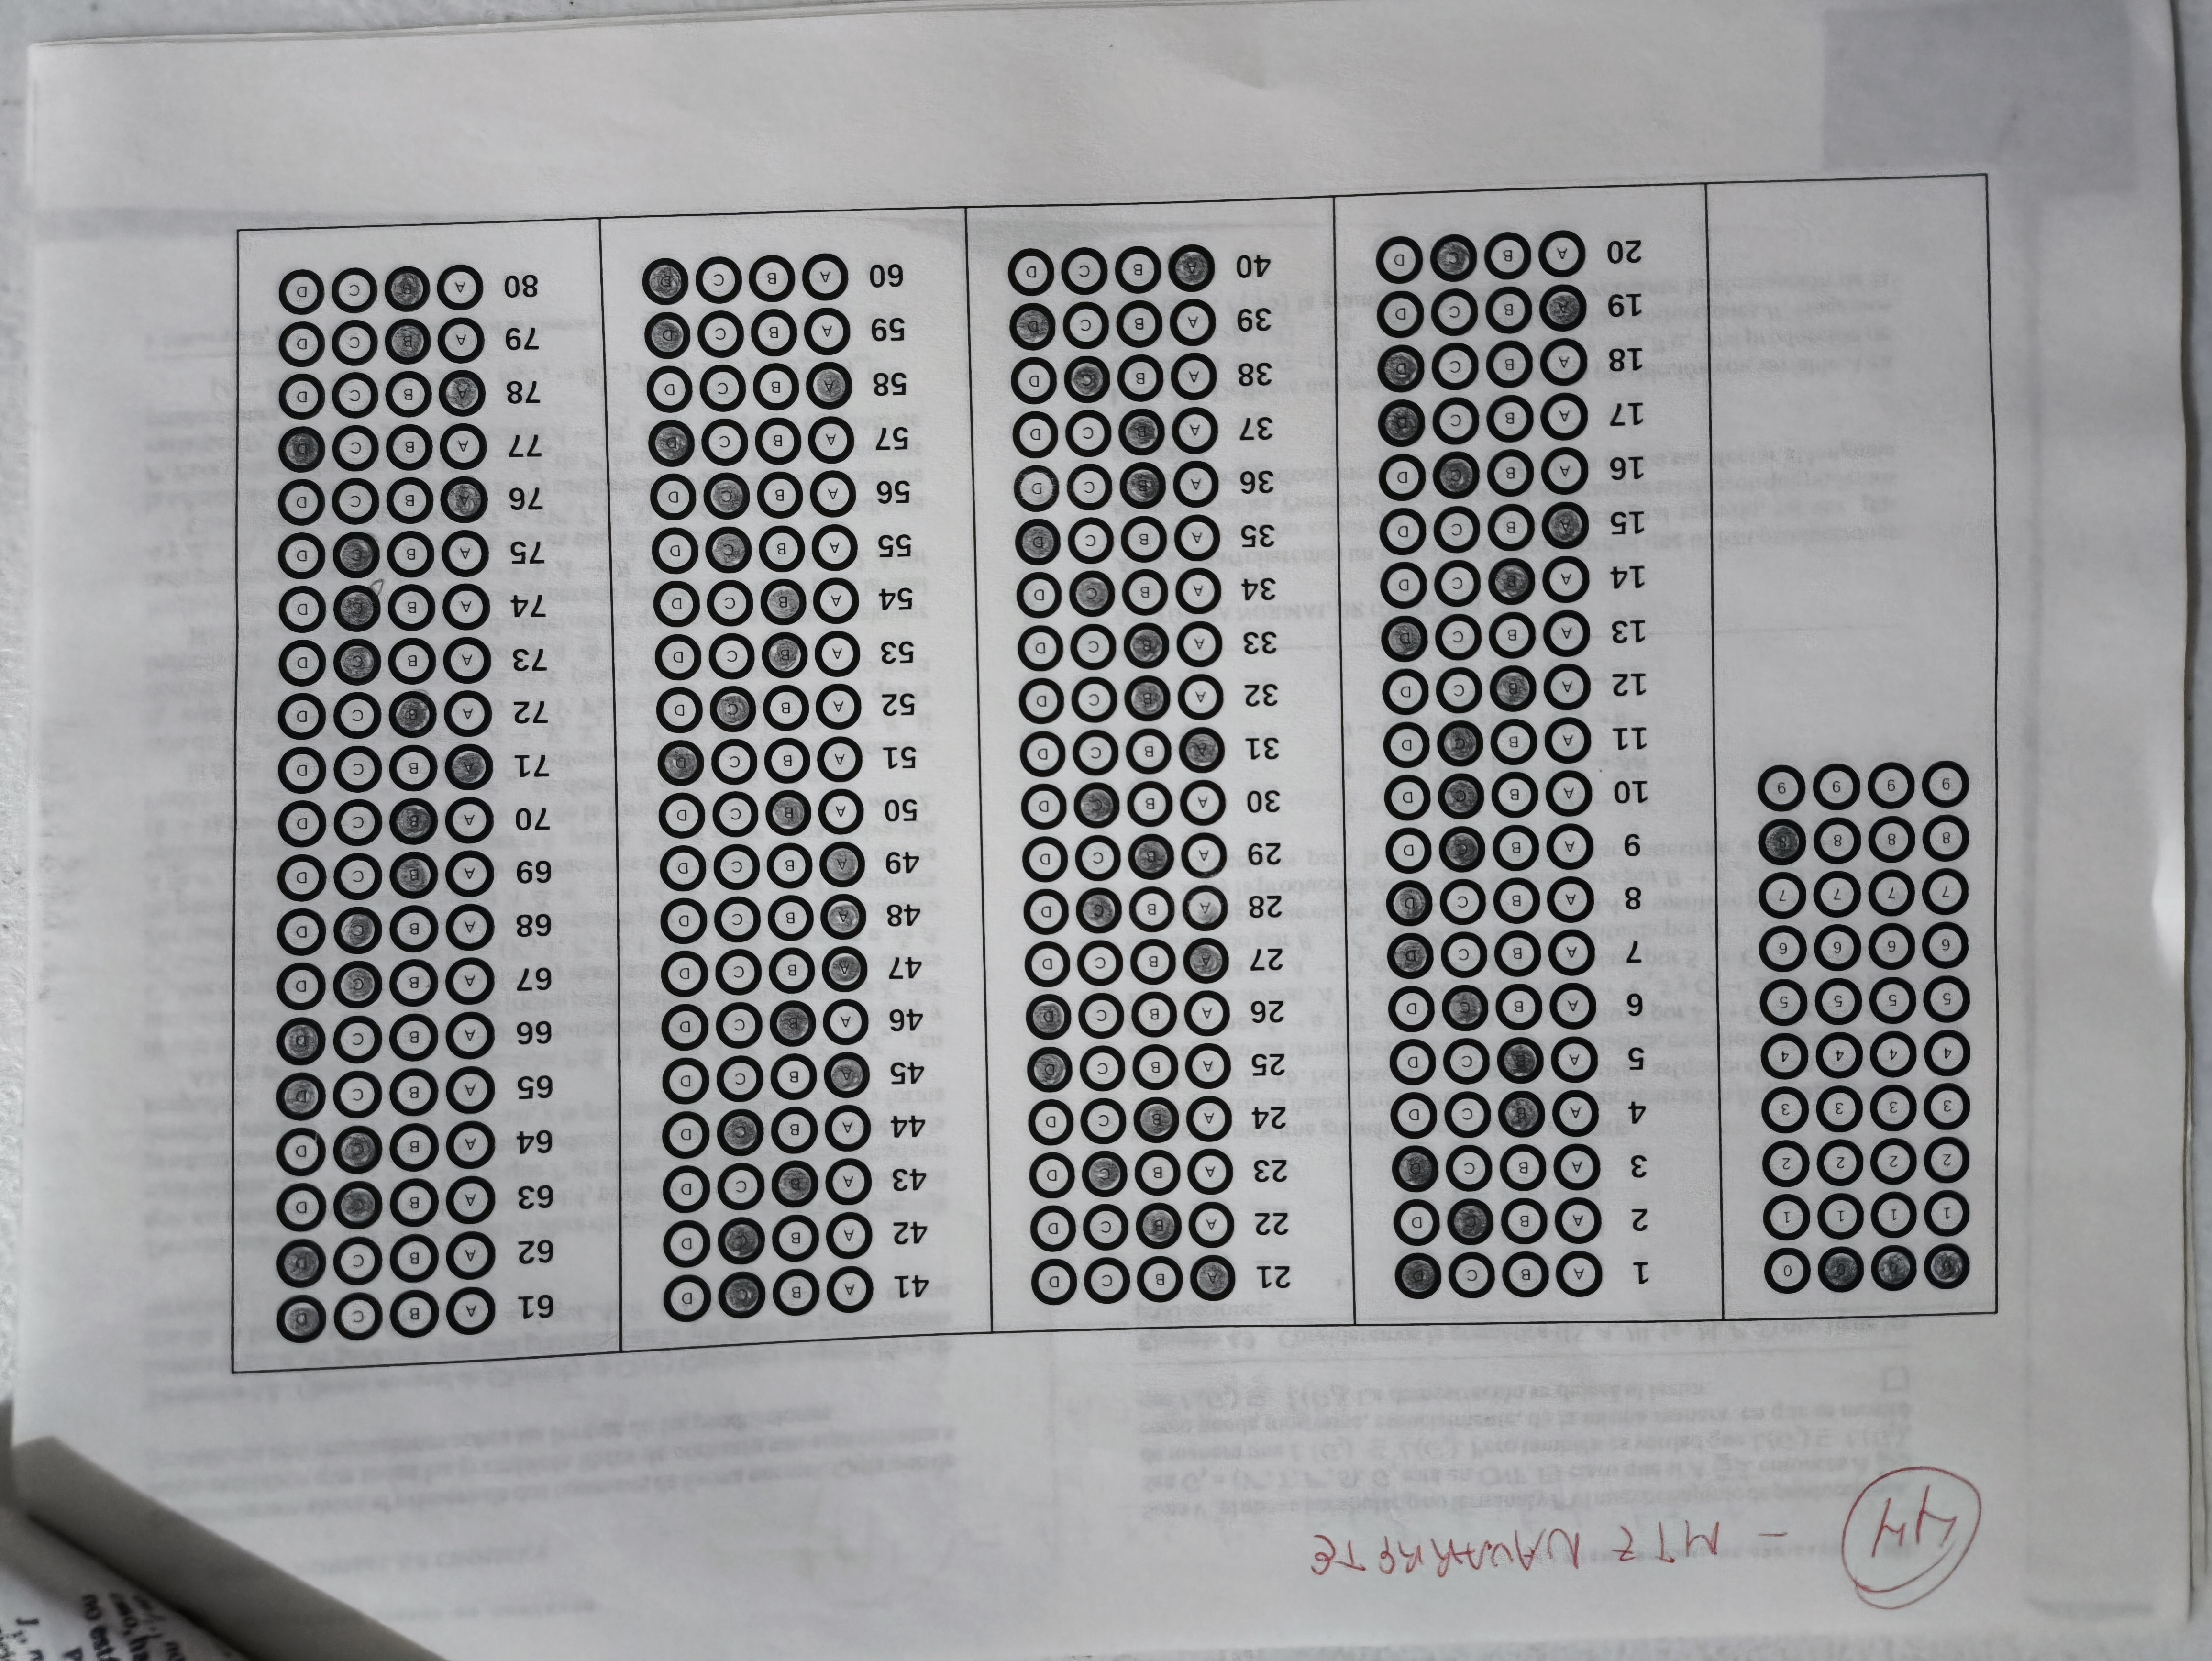 44 - MTZ NAVARRETE
0 0 0 0
1 1 1 1
2 2 2 2
3 3 3 3
4 4 4 4
5 5 5 5
6 6 6 6
7 7 7 7
8 8 8 8
9 9 9 9
1 A B C D
2 A B C D
3 A B C D
4 A B C D
5 A B C D
6 A B C D
7 A B C D
8 A B C D
9 A B C D
10 A B C D
11 A B C D
12 A B C D
13 A B C D
14 A B C D
15 A B C D
16 A B C D
17 A B C D
18 A B C D
19 A B C D
20 A B C D
21 A B C D
22 A B C D
23 A B C D
24 A B C D
25 A B C D
26 A B C D
27 A B C D
28 A B C D
29 A B C D
30 A B C D
31 A B C D
32 A B C D
33 A B C D
34 A B C D
35 A B C D
36 A B C D
37 A B C D
38 A B C D
39 A B C D
40 A B C D
41 A B C D
42 A B C D
43 A B C D
44 A B C D
45 A B C D
46 A B C D
47 A B C D
48 A B C D
49 A B C D
50 A B C D
51 A B C D
52 A B C D
53 A B C D
54 A B C D
55 A B C D
56 A B C D
57 A B C D
58 A B C D
59 A B C D
60 A B C D
61 A B C D
62 A B C D
63 A B C D
64 A B C D
65 A B C D
66 A B C D
67 A B C D
68 A B C D
69 A B C D
70 A B C D
71 A B C D
72 A B C D
73 A B C D
74 A B C D
75 A B C D
76 A B C D
77 A B C D
78 A B C D
79 A B C D
80 A B C D